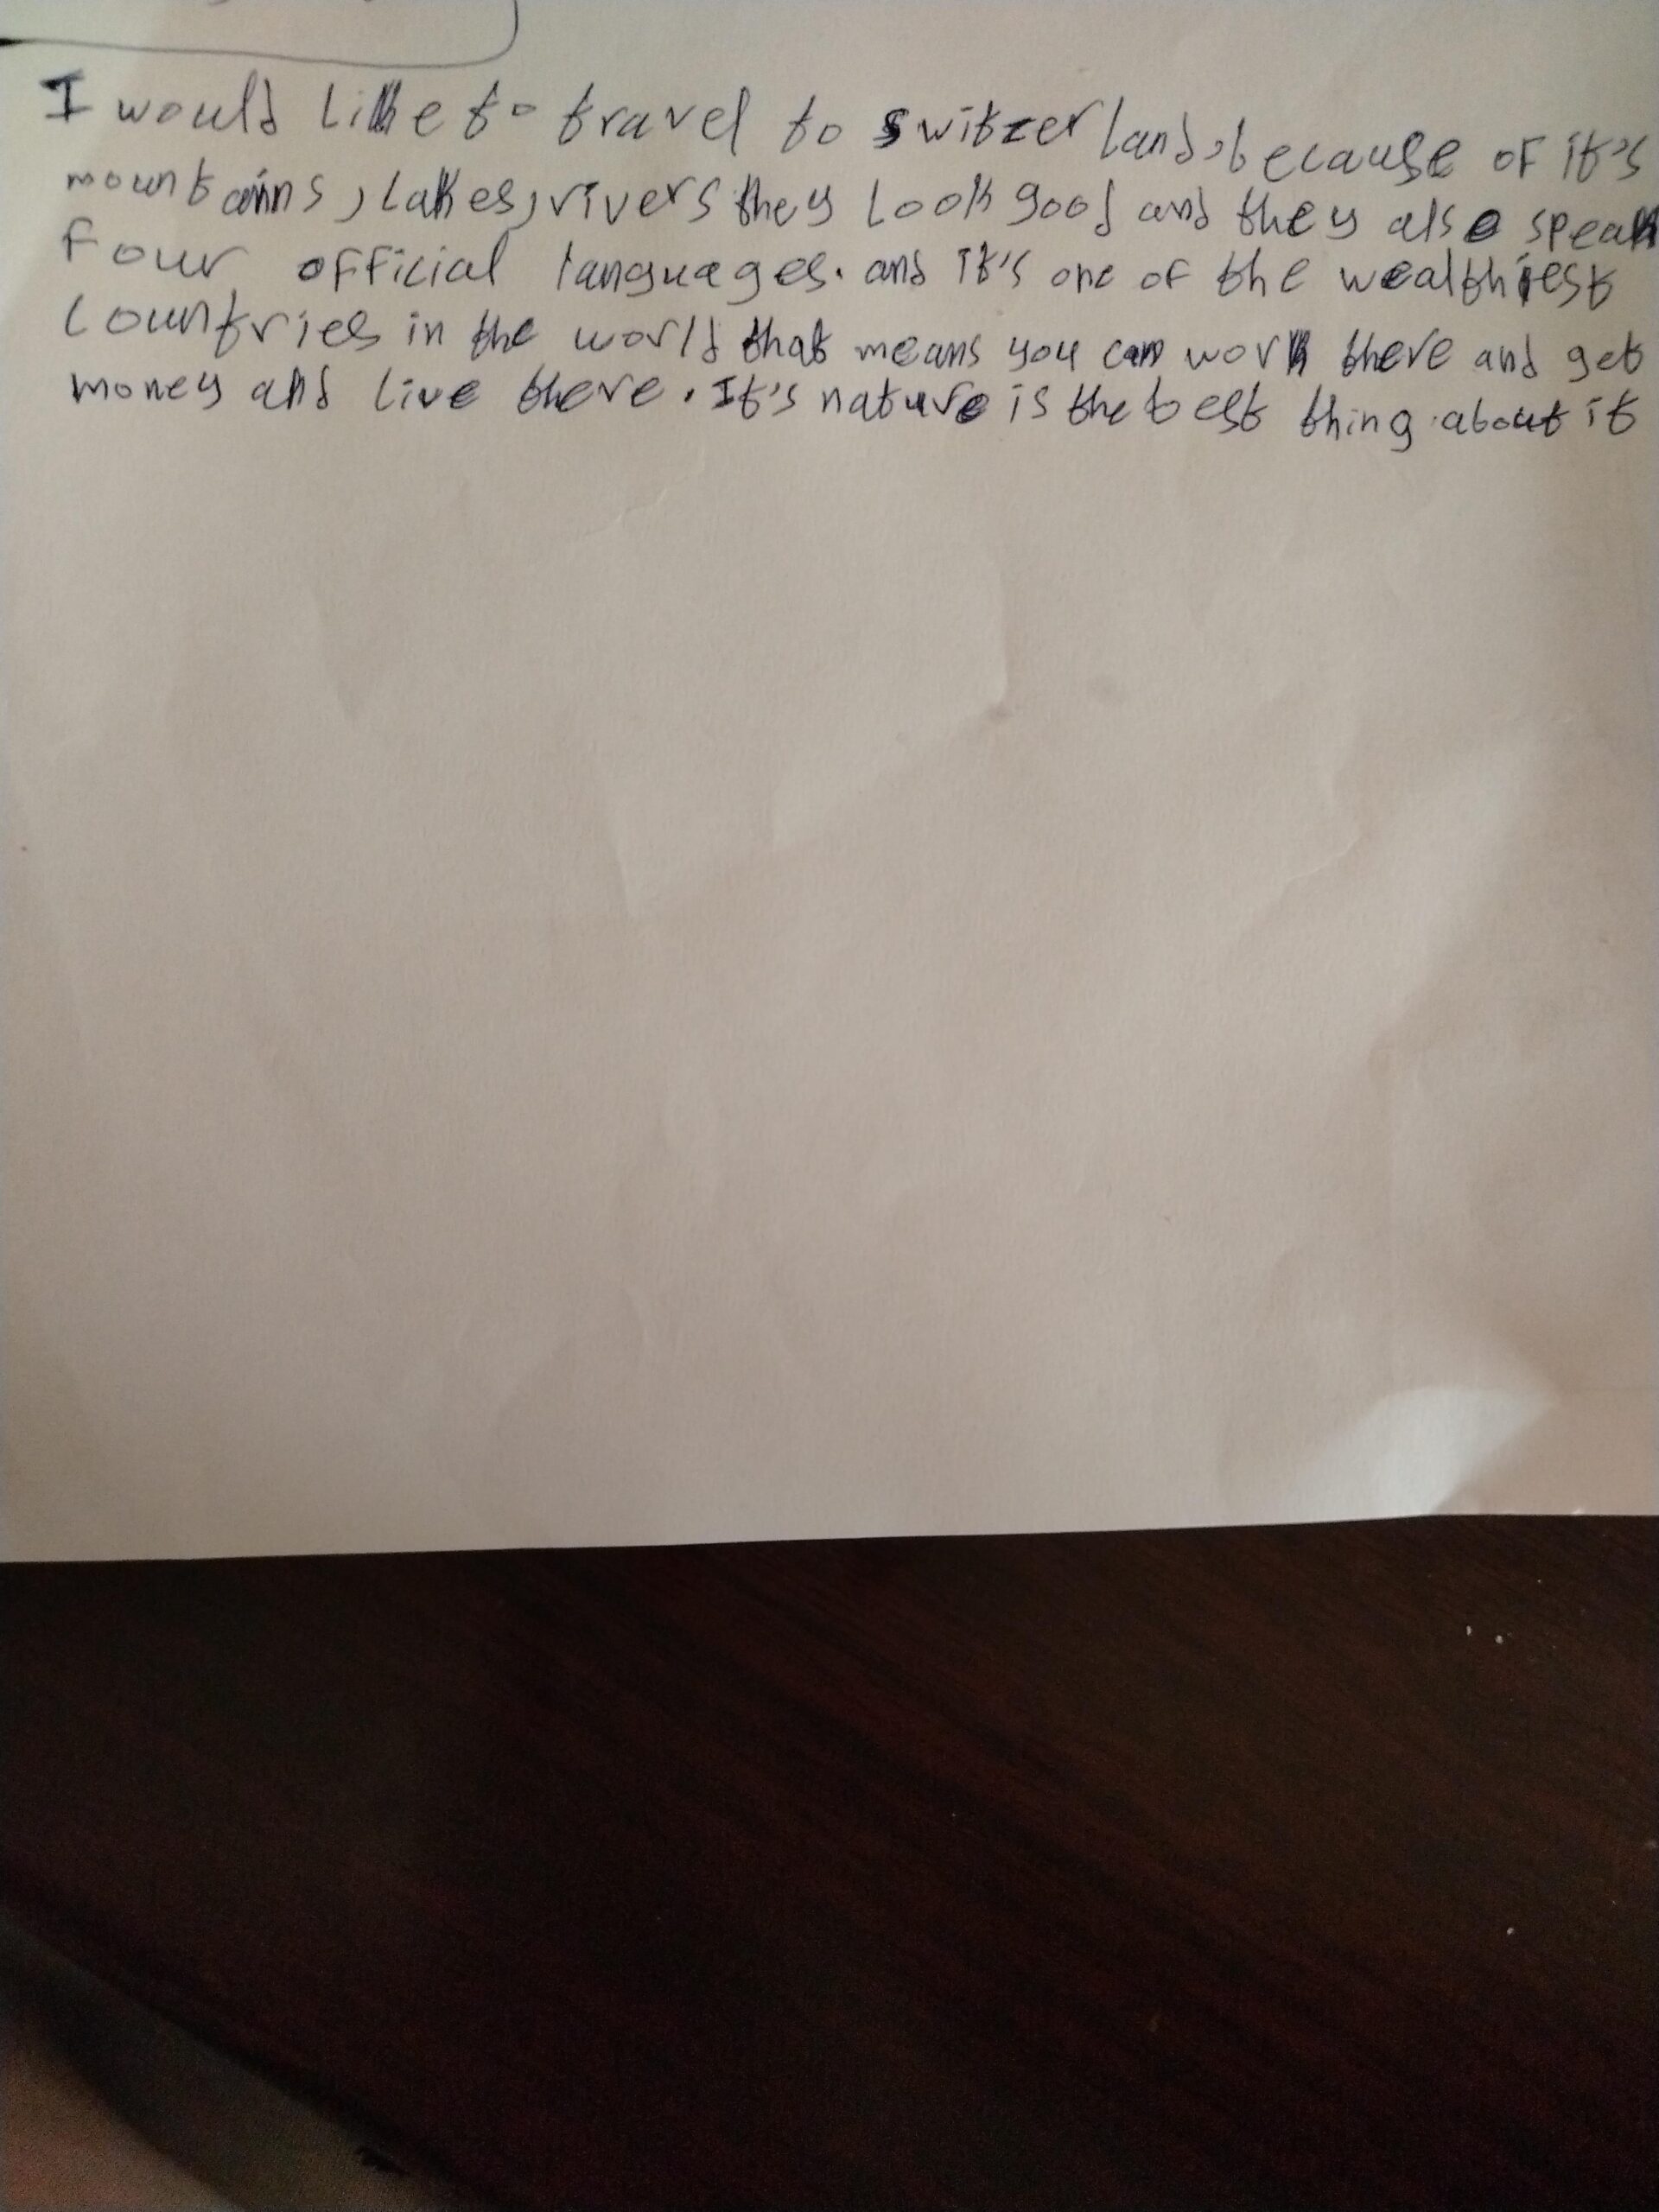 I would like to travel to switzerland, because of it's
mountains, lakes, rivers they look good and they also speak
four official languages. and it's one of the wealthiest
countries in the world that means you can work there and get
money and live there. It's nature is the best thing about it